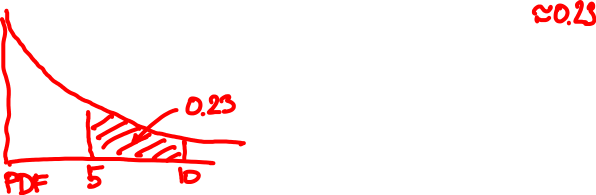 ≈0.23
0.23
PDF 5 10